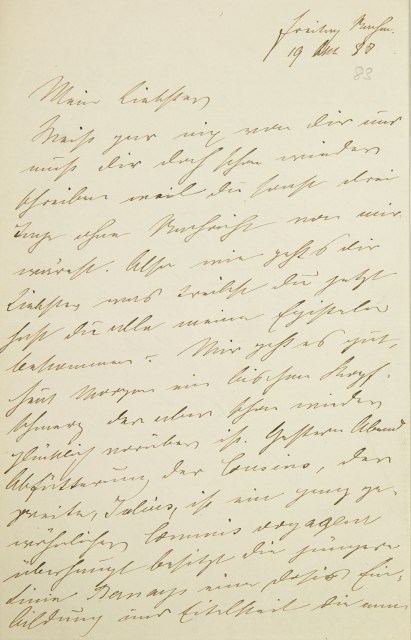 Freitag Nachm.
19 83
83
Mein Liebster
Weiß gar nix von dir und
muß dir doch schon wieder
schreiben weil du sonst drei
Tage ohne Nachricht von mir
wärest. Also wie geht's dir
Liebster was treibst du jetzt
hast du alle meine Episteln
bekommen? Mir geht es gut,
heut Morgen ein bischen Kopf-
schmerz der aber schon wieder
glücklich vorüber ist. Gestern Abend
Abfütterung der Cousins, der
zweite, Julius, ist ein ganz ge-
wöhnlicher Commis voyageur
überhaupt besitzt die jüngere
Linie Bernays eine dosis Ein-
bildung und Eitelkeit die einen